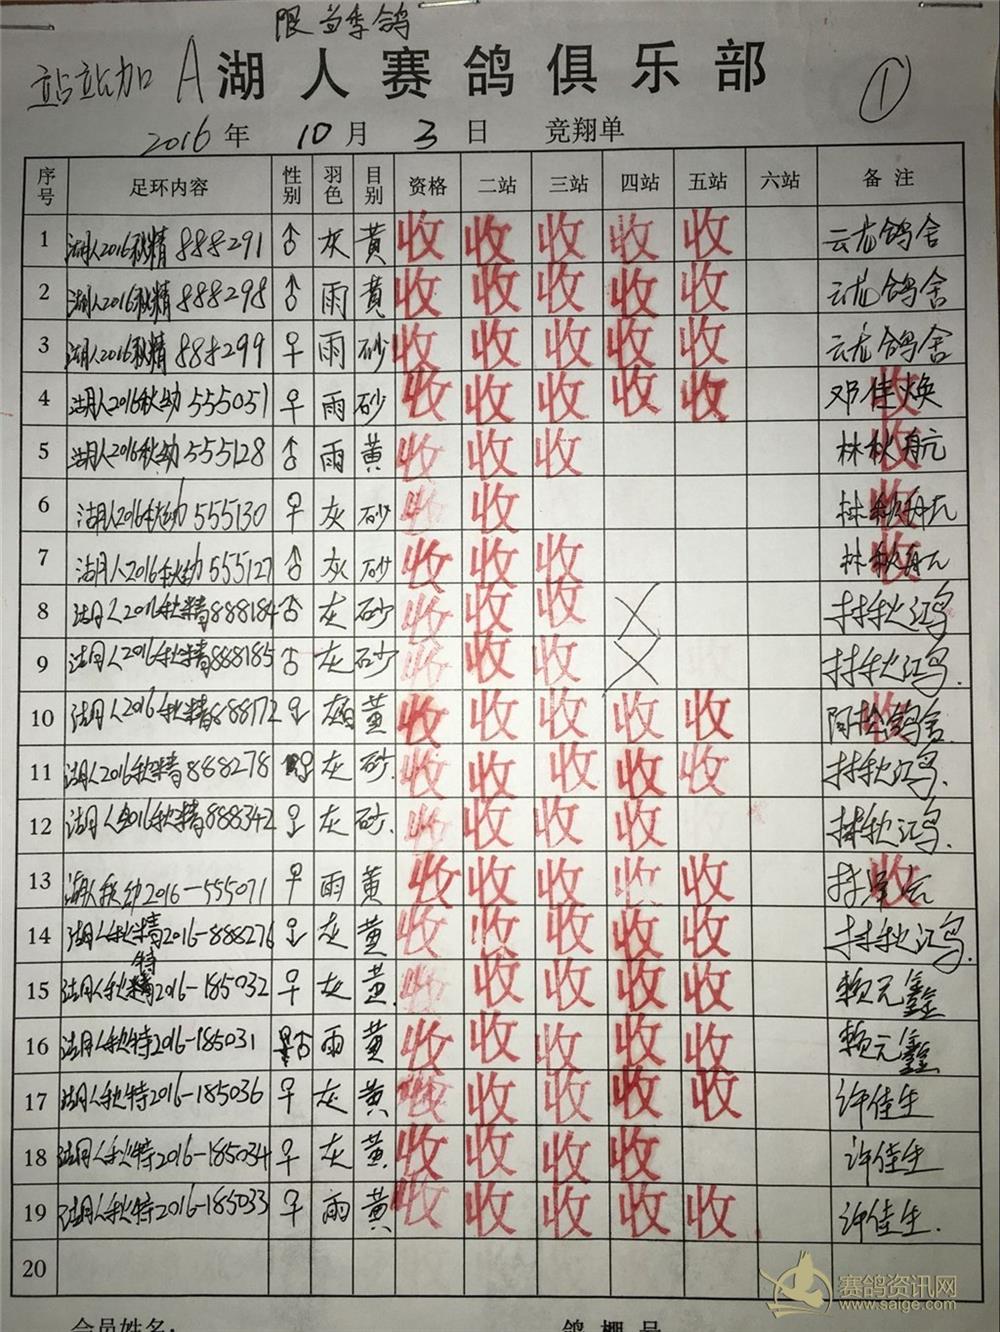 限当季鸽
站站加 A 湖人赛鸽俱乐部 ①
2016年 10月 3日 竞翔单
序号 足环内容 性别 羽色 目别 资格 二站 三站 四站 五站 六站 备注
1 湖人2016秋精888291 ♂ 灰 黄 收 收 收 收 收 云龙鸽舍
2 湖人2016秋精888298 ♂ 雨 黄 收 收 收 收 收 云龙鸽舍
3 湖人2016秋精888299 ♀ 雨 砂 收 收 收 收 收 云龙鸽舍
4 湖人2016秋幼555051 ♀ 雨 砂 收 收 收 收 收 邓佳焕 收
5 湖人2016秋幼555128 ♂ 雨 黄 收 收 收 林秋 收
6 湖人2016秋幼555130 ♀ 灰 砂 收 收 林秋 收
7 湖人2016秋幼555127 ♂ 灰 砂 收 收 收 林秋 收
8 湖人2016秋精888184 ♂ 灰 砂 收 收 收 X 林秋鸿
9 湖人2016秋精888185 ♂ 灰 砂 收 收 收 X 林秋鸿.
10 湖人2016秋精888172 ♀ 灰 黄 收 收 收 收 收 鸽舍. 收
11 湖人2016秋精888278 ♀ 灰 砂. 收 收 收 收 收 林秋鸿.
12 湖人2016秋精888342 ♀ 灰 砂. 收 收 收 收 林秋鸿.
13 湖人秋幼2016-555071 ♀ 雨 黄 收 收 收 收 收 收
14 湖人秋精2016-888276 ♀ 灰 黄 收 收 收 收 收 林秋鸿.
15 湖人秋特2016-185032 ♀ 灰 黄. 收 收 收 收 收 赖元鑫
16 湖人秋特2016-185031 ♂ 雨 黄 收 收 收 收 收 赖元鑫
17 湖人秋特2016-185036 ♀ 灰 黄 收 收 收 收 收 许佳生
18 湖人秋特2016-185034 ♀ 灰 黄 收 收 收 收 许佳生
19 湖人秋特2016-185033 ♀ 雨 黄 收 收 收 收 收 许佳生.
20
会员姓名: 鸽棚号
赛鸽资讯网
www.saige.com